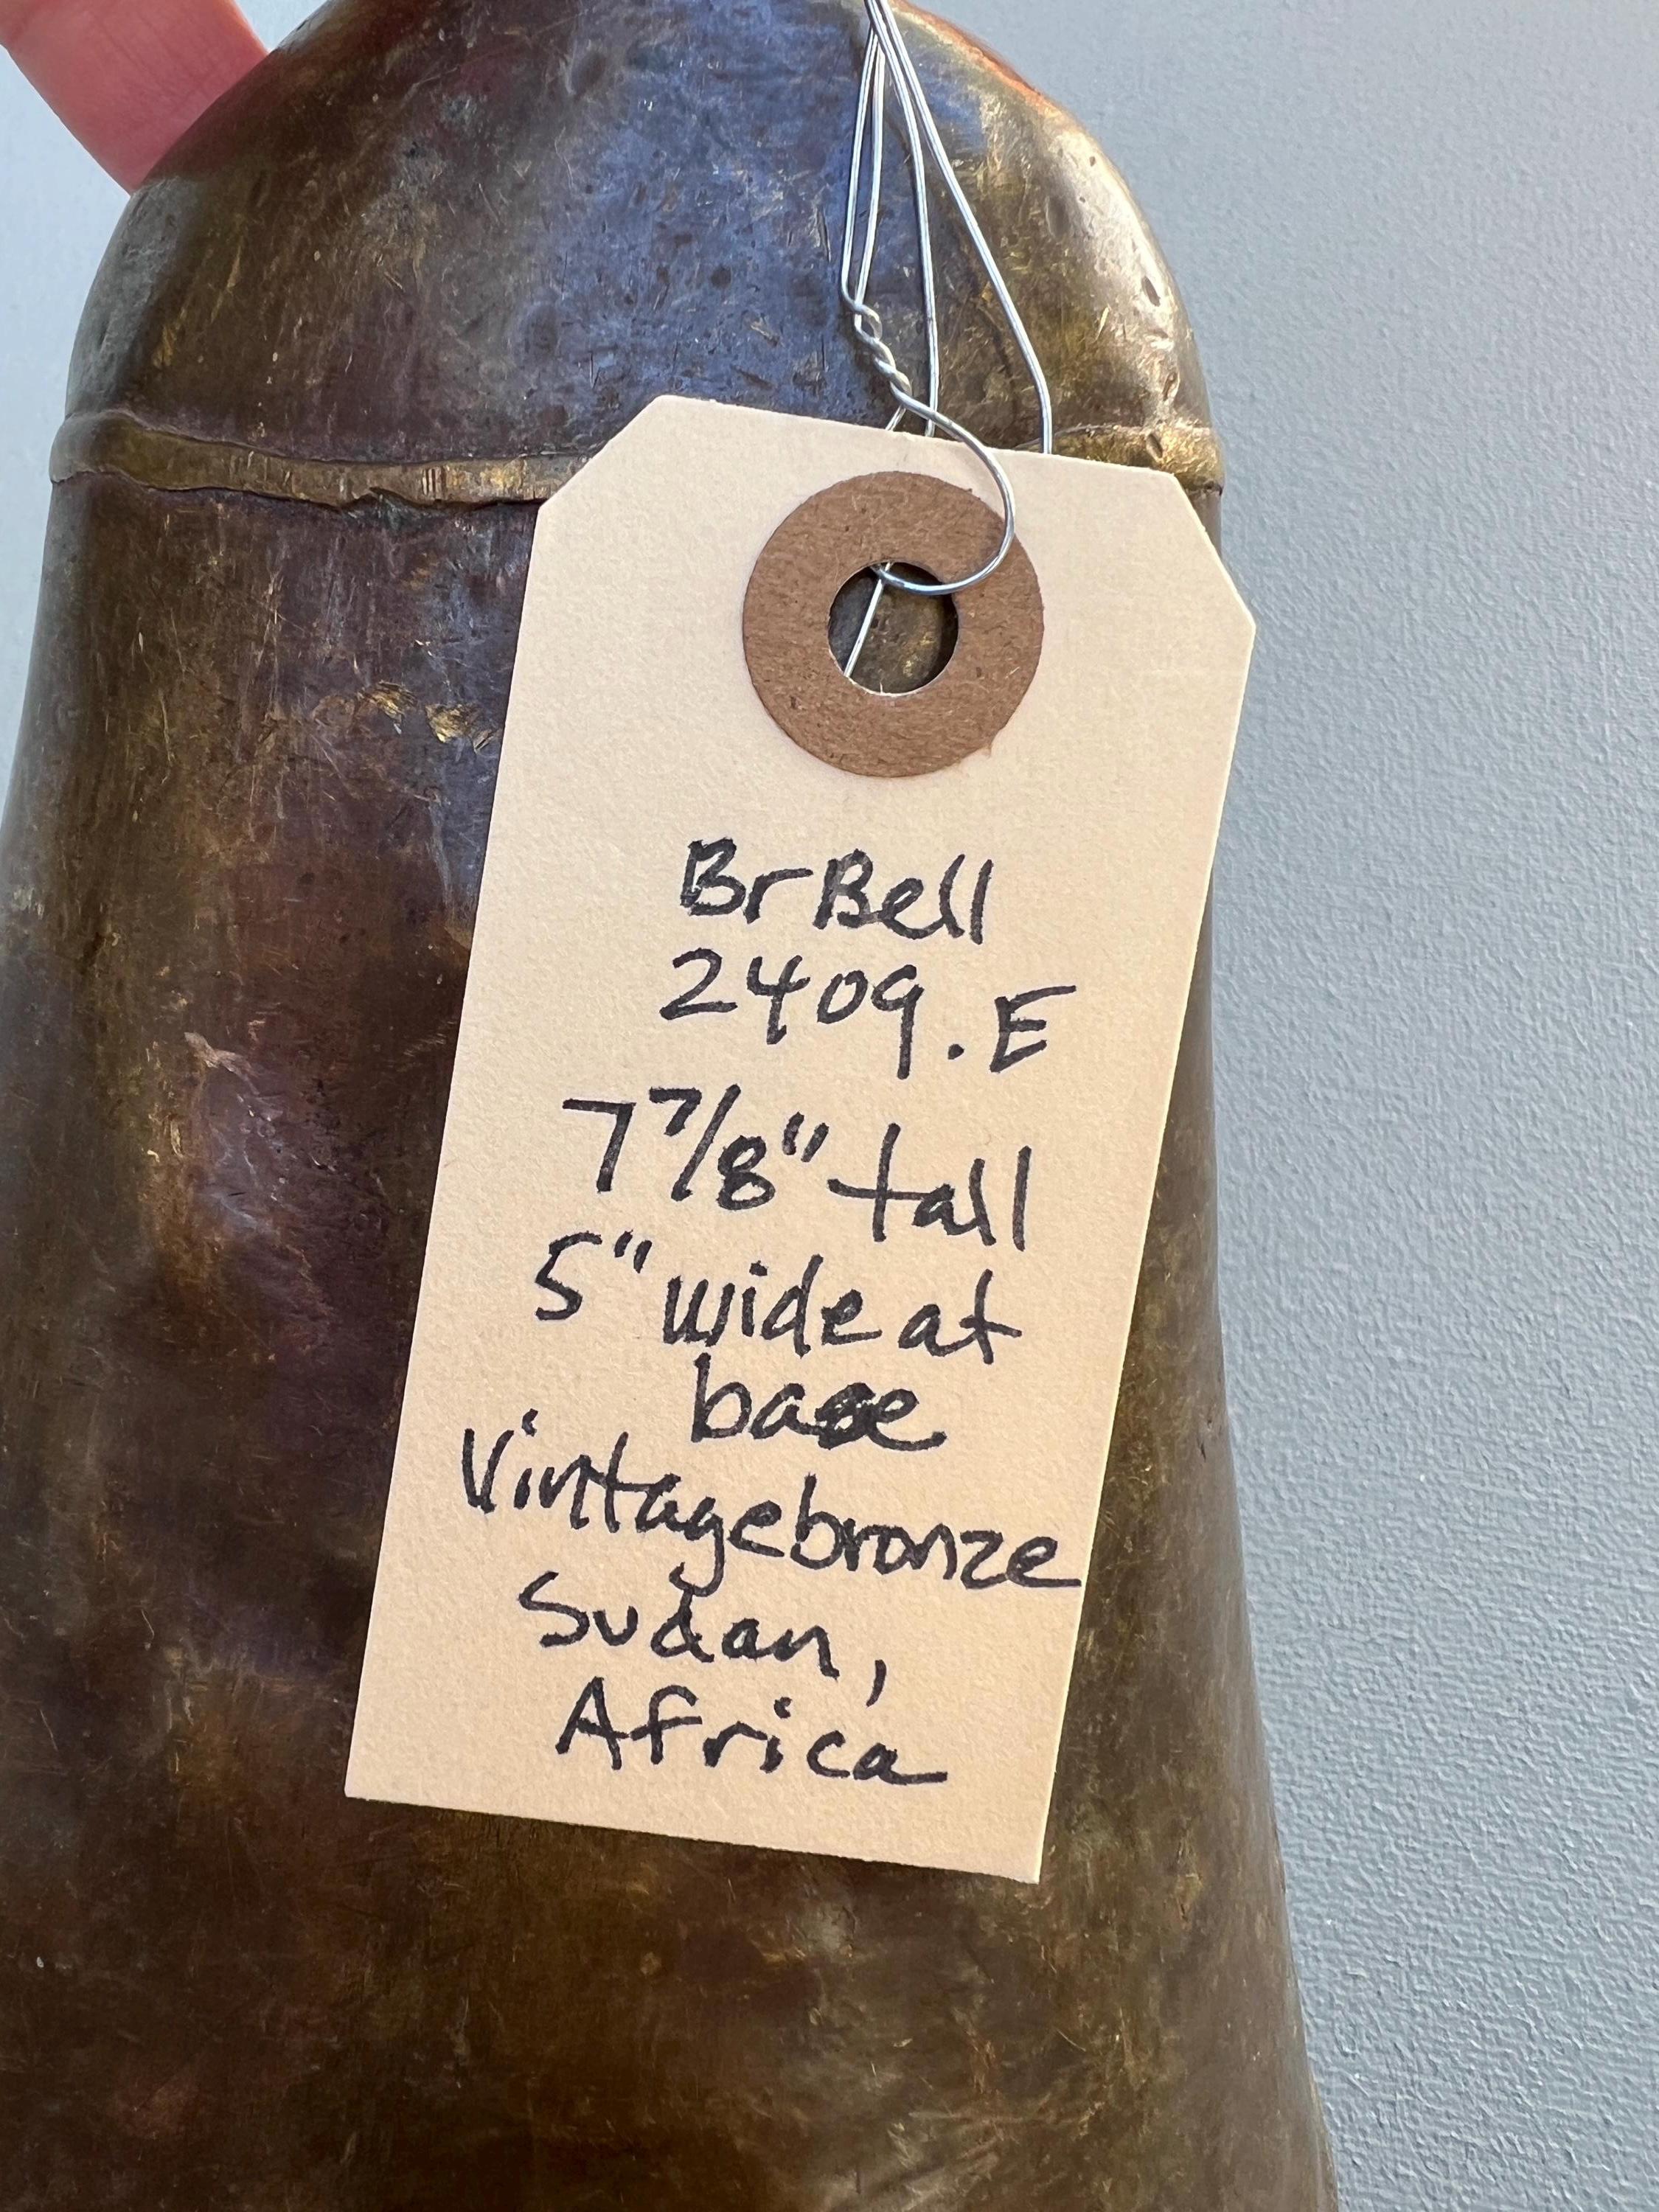 Br Bell
2409.E
7 7/8" tall
5" wide at
base
Vintage bronze
Sudan,
Africa